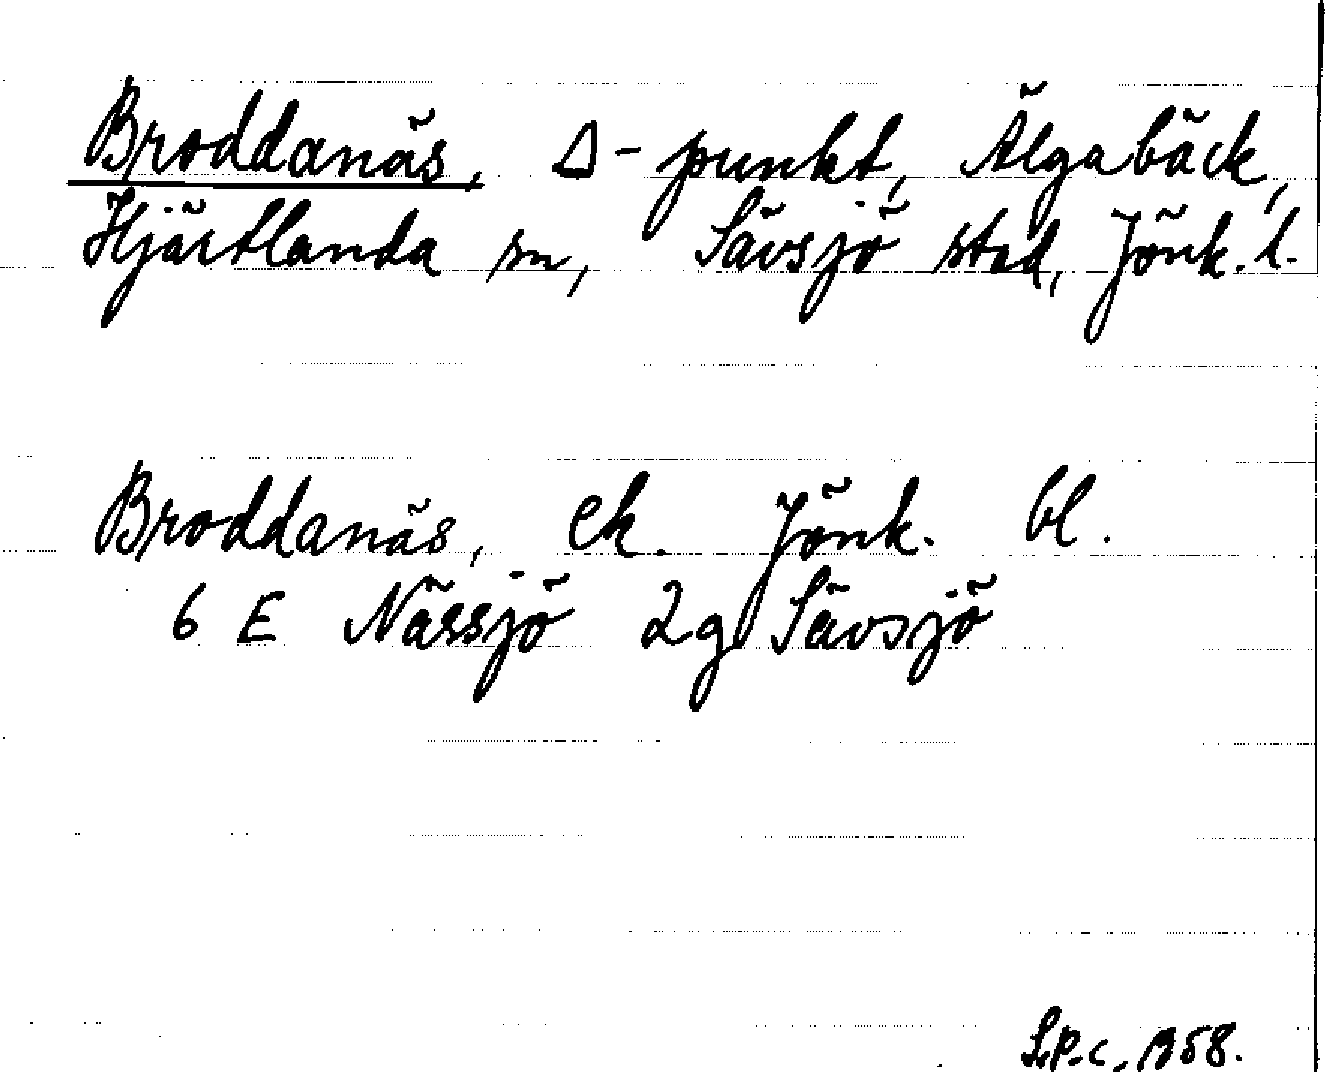 Broddanäs, Δ-punkt, Älgabäck,
Hjärtlanda sn, Sävsjö stad, Jönk. l.
Broddanäs, ek. Jönk. bl.
6 E Nässjö 2g Sävsjö
S.P.C. 1958.